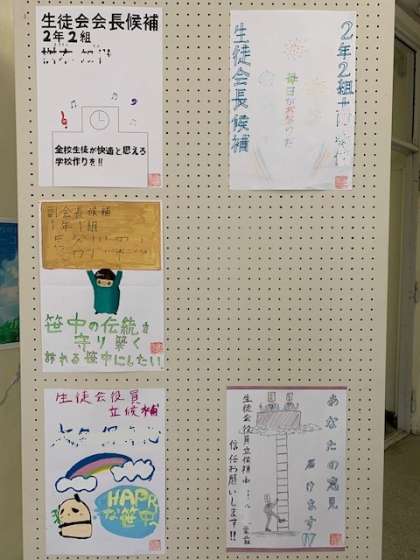 生徒会会長候補
2年2組
全校生徒が快適と思える
学校作りを!!
2年2組
生徒会長候補
毎日が
副会長候補
1年1組
笹中の伝統を
守り築く
誇れる笹中にしたい
生徒会役員
立候補
HAPPY
な笹中
あなたの意見
届けます!!
生徒会役員立候補
信任お願いします!!